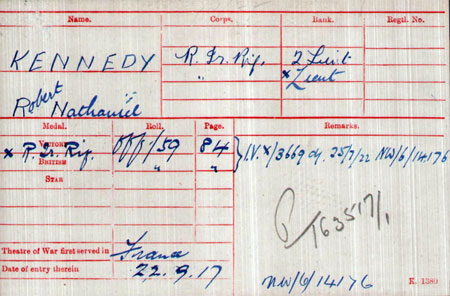 Name. Corps. Rank. Regtl. No.
KENNEDY R. Ir. Rif. 2 Lieut
" x Lieut
Robert Nathaniel
Medal. Roll. Page. Remarks.
VICTORY
x R. Ir. Rif. Off/59 84 } I.V. x/3669 d/ 25/7/22 NW/6/14176
BRITISH " "
STAR
P/163517/1
Theatre of War first served in France
Date of entry therein 22.9.17
NW/6/14176 K. 1380